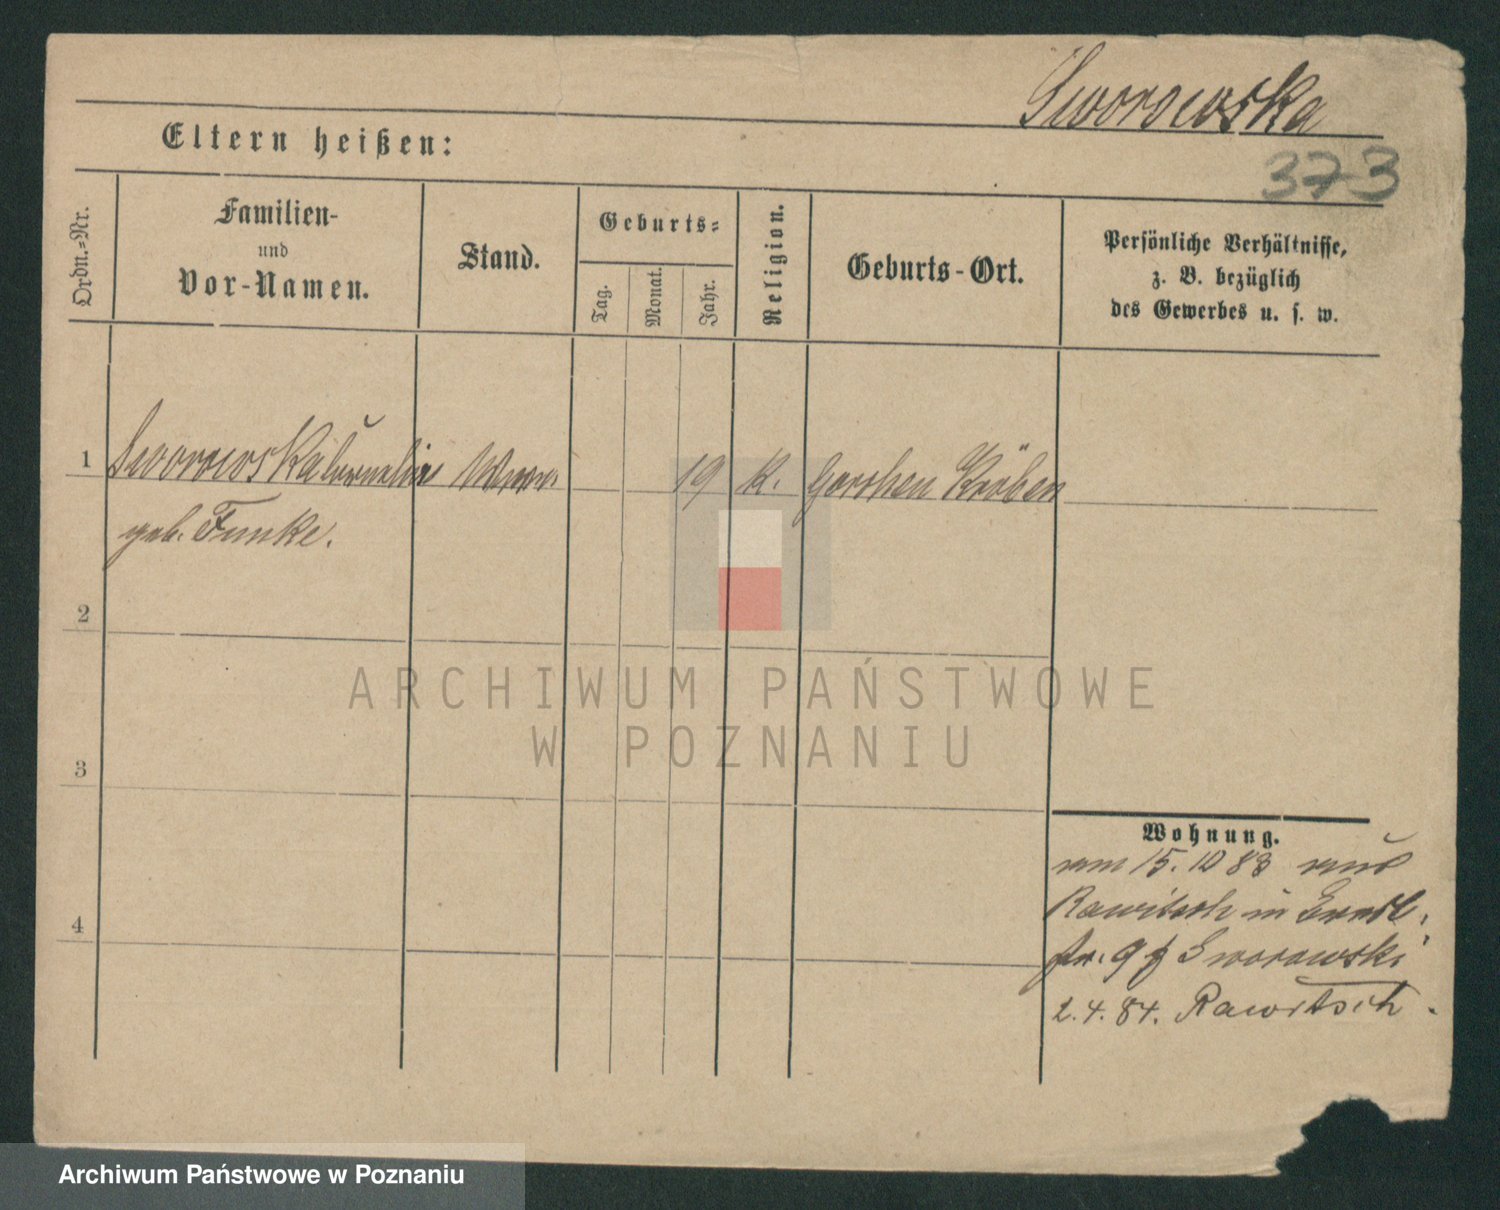 Sworowska
373
Eltern heißen:
Ordn.=Nr.
Familien-
und
Vor-Namen.
Stand.
Geburts=
Tag.
Monat.
Jahr.
Religion.
Geburts-Ort.
Persönliche Verhältnisse,
z. B. bezüglich
des Gewerbes u. s. w.
1 Sworowska 19 K. Görchen Kröben
geb. Funke.
2
3
4
Wohnung.
am 15. 10 83 aus
Rawitsch in
Sworowski
2.4.84. Rawitsch.
ARCHIWUM PAŃSTWOWE
W POZNANIU
Archiwum Państwowe w Poznaniu